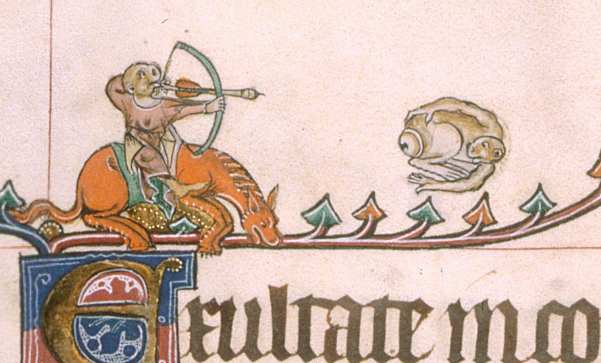 Exultate in co